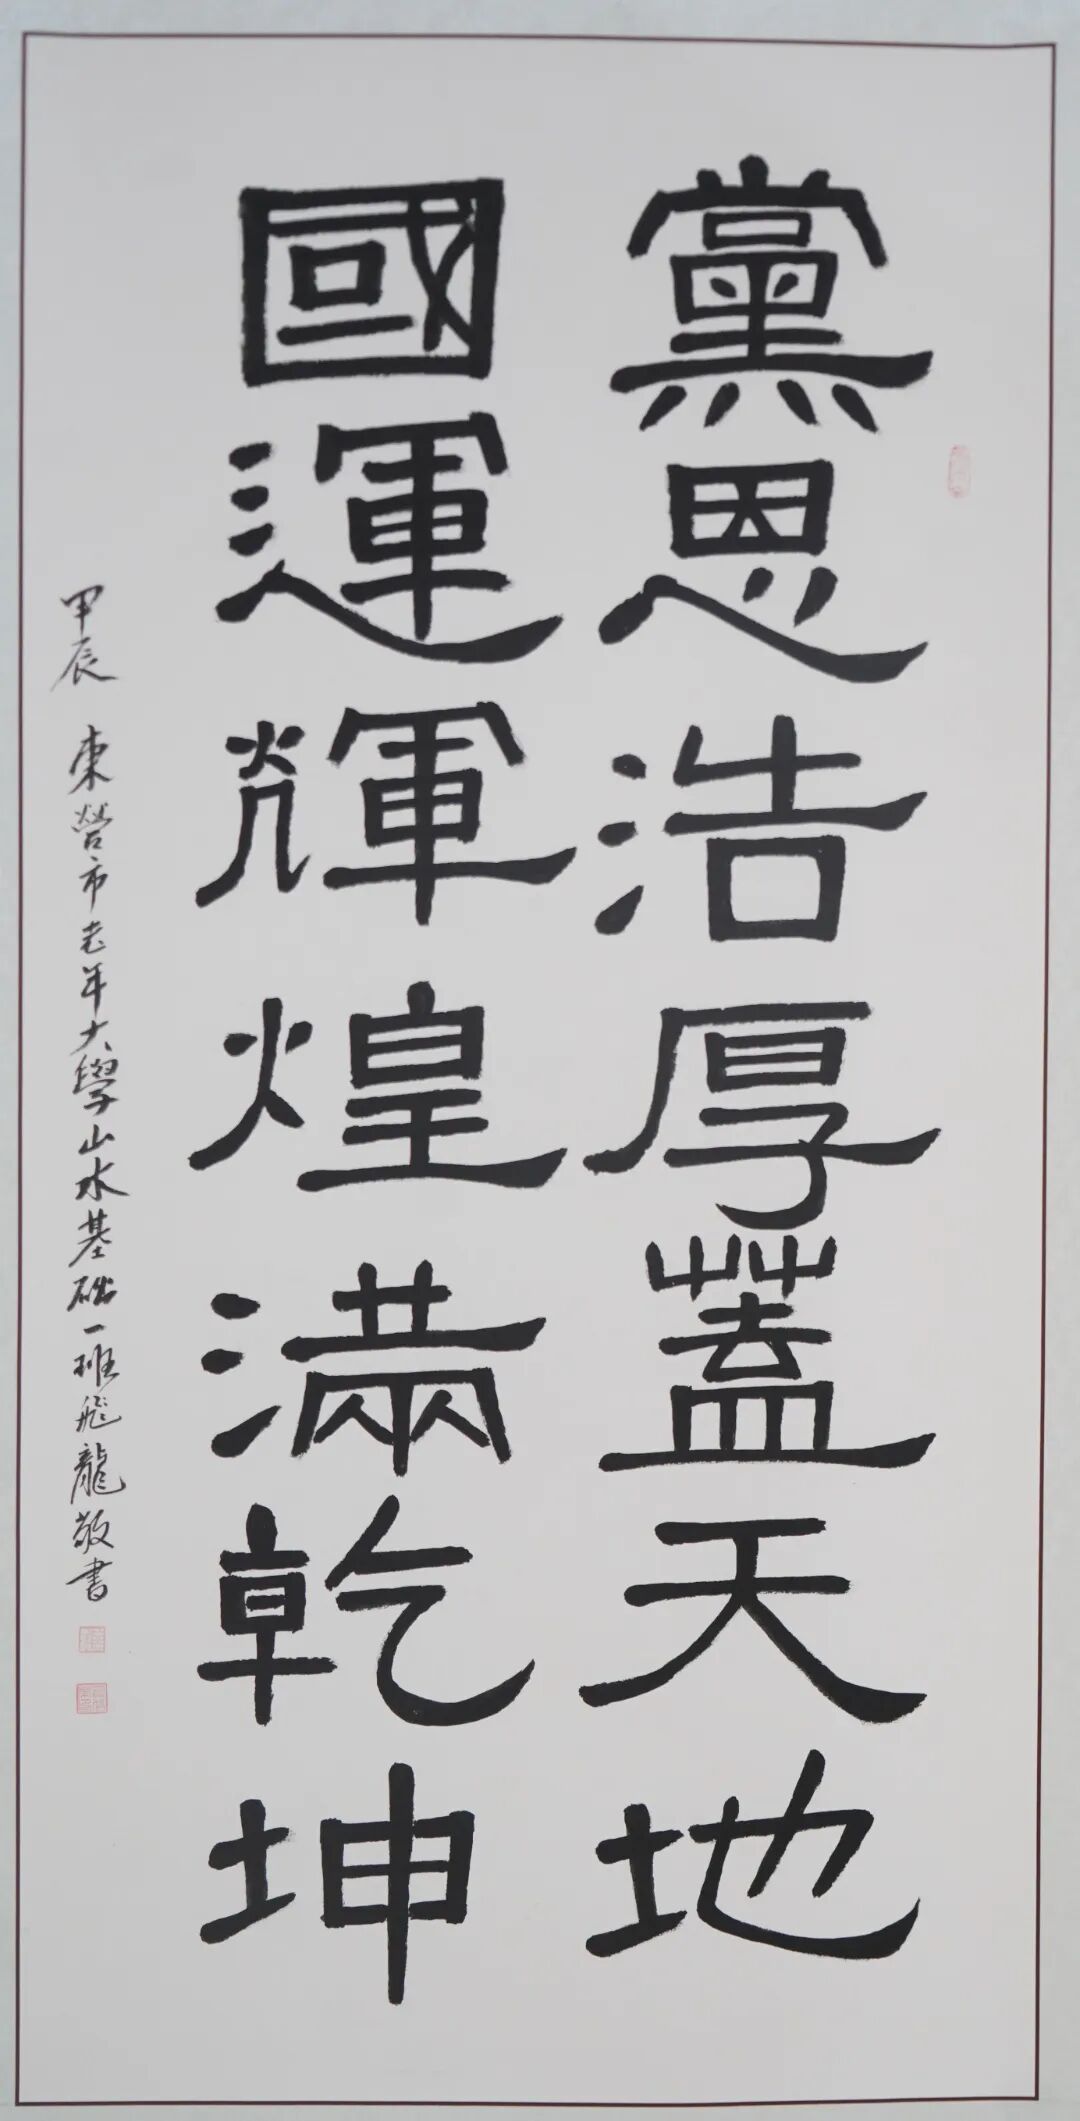 黨恩浩厚蓋天地
國運輝煌滿乾坤
甲辰 東營市老年大學山水基础一班飛龍敬書